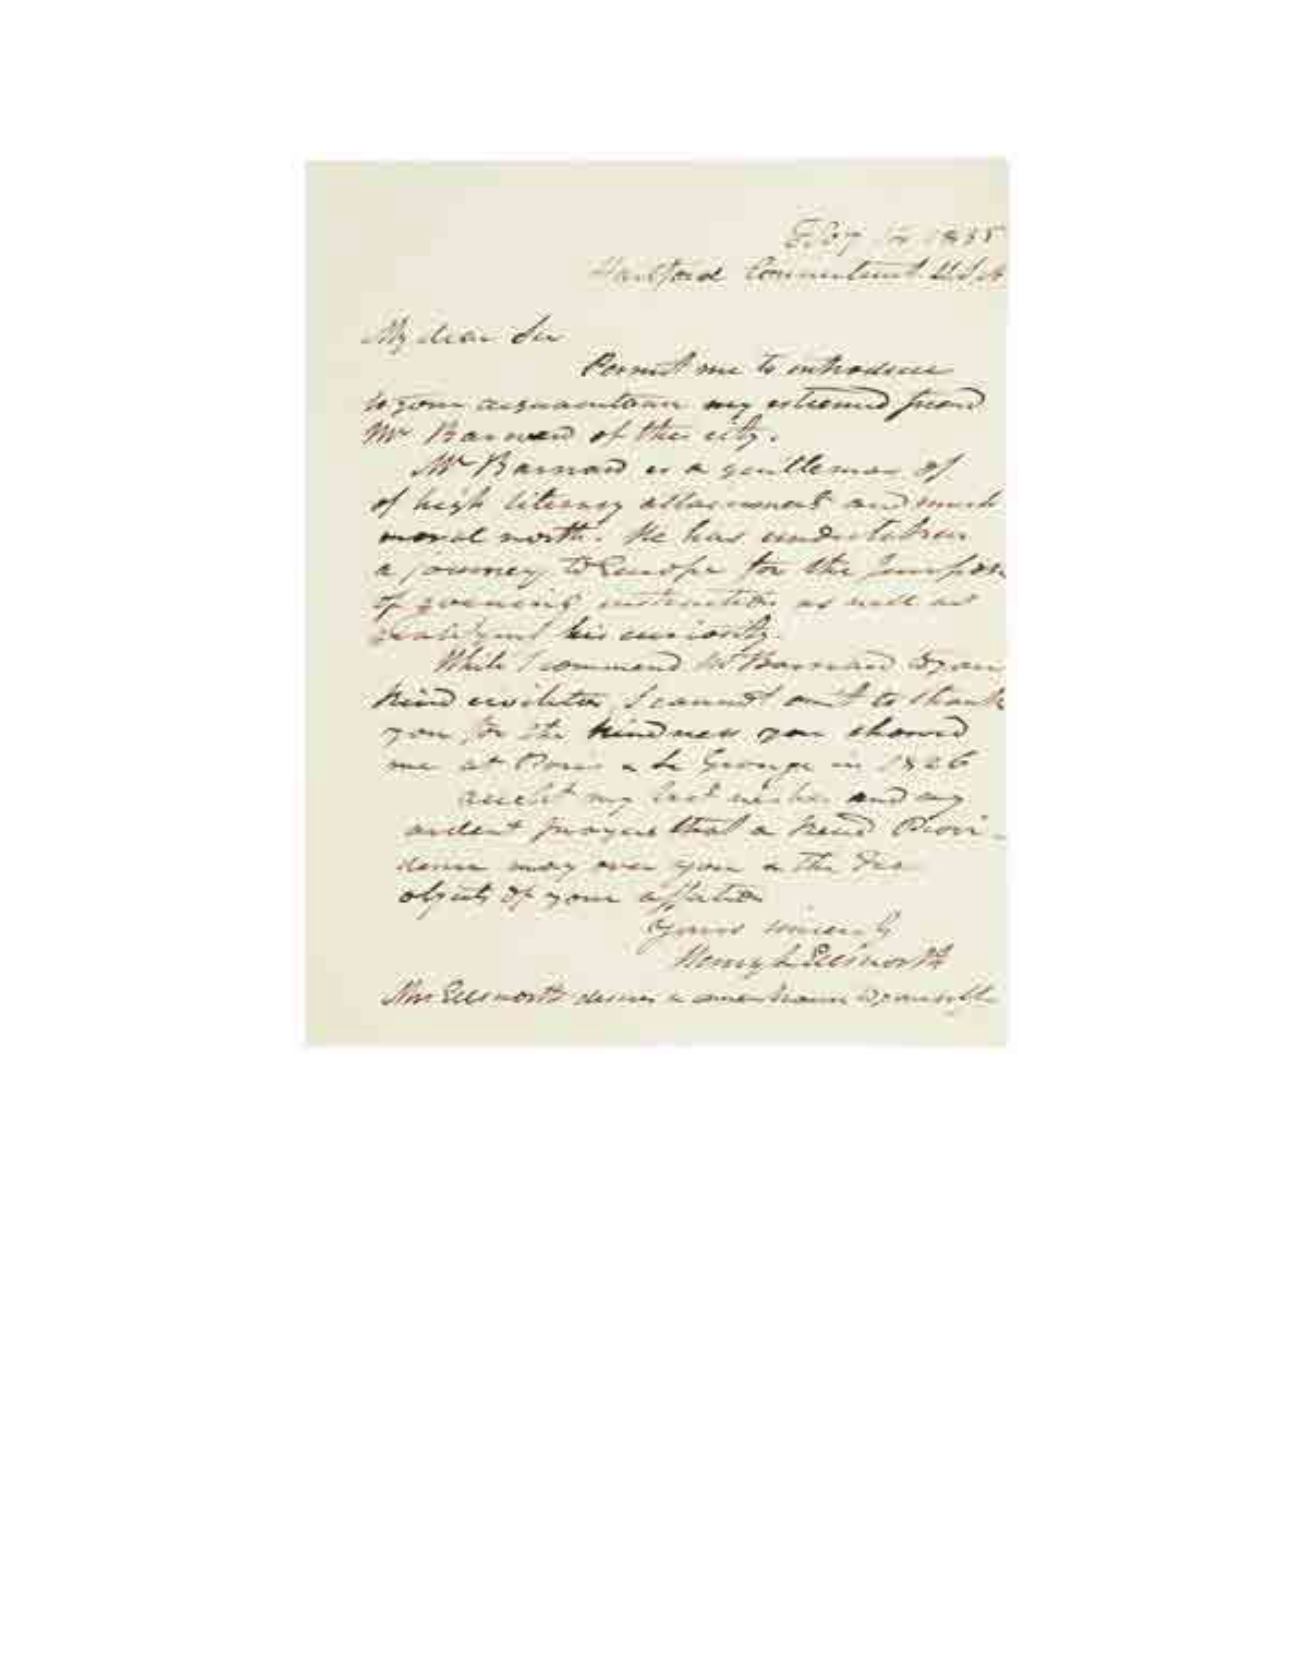 1835
Hartford Connecticut U.S.A
My dear Sir
Permit me to introduce
to your acquaintance my esteemed friend
Mr Barnard of this city.
Mr Barnard is a gentleman of
of high literary attainment and much
moral worth. He has undertaken
a journey to Europe for the purpose
of gaining instruction as well as
gratifying his curiosity.
While I commend Mr Barnard to your
kind civilities, I cannot omit to thank
you for the kindness you showed
me at Paris & La Grange in 1826
accept my best wishes and my
ardent prayers that a kind Provi-
dence may over you & the
objects of your affection
Yours sincerely
Henry L Ellsworth
Mrs Ellsworth desires a to yourself